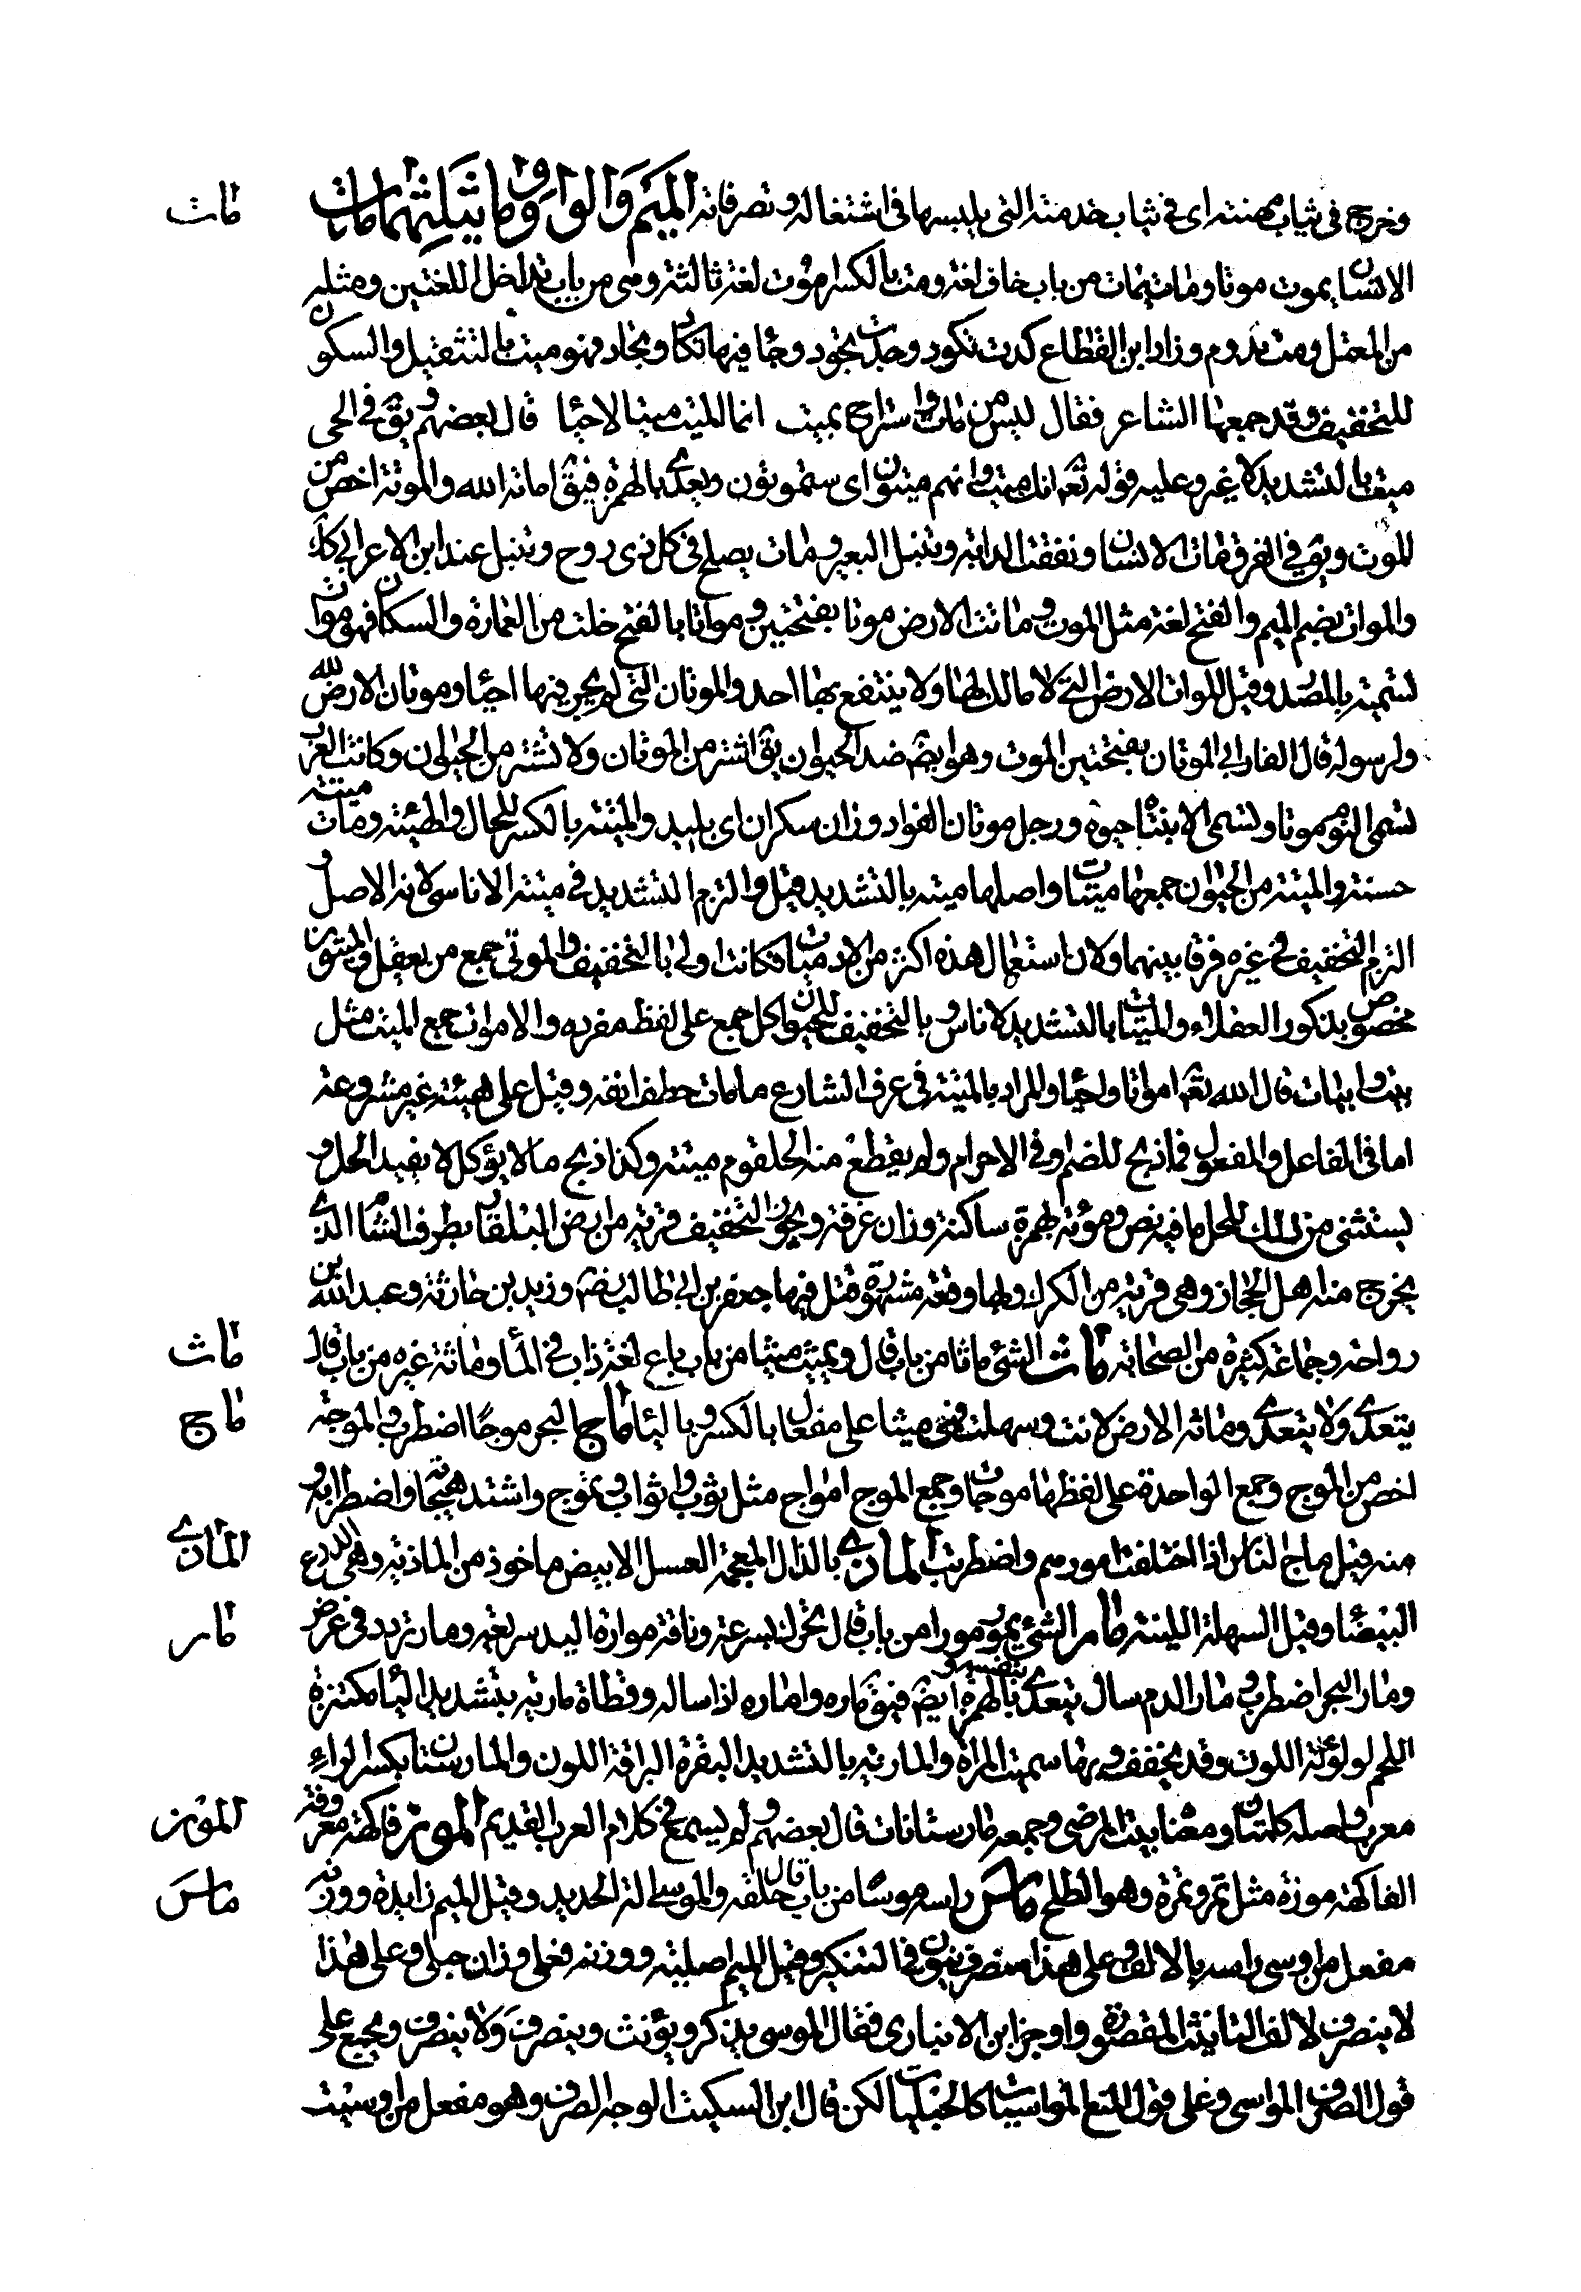 وخرج في ثياب مهنته اى في ثياب خدمته التى يلبسها في اشتغاله وتصرفاته الميم والواو وما يثلثهما مات
الانسان يموت موتا ومات يمات من باب خاف لغة ومت بالكسر اموت لغة ثالثة وهى من باب تداخل اللغتين ومثله
من المعتل دمت تدوم وزاد ابن القطاع كدت تكود وجدت تجود وجا فيها تكاد وتجاد فهو ميت بالتثقيل والسكون
للتخفيف وقد جمعهما الشاعر فقال ليس من مات واستراح بميت انما الميت ميت الاحيا قال بعضهم ويق في الحى
ميت بالتشديد لا غير وعليه قوله تع انك ميت وانهم ميتون اى ستموتون ويعدى بالهمزة فيق اماته الله والموتة اخص من
الموت ويق في الفرق مات الانسان ونفقت الدابة وتنبل البعير ومات يصلح في كل ذى روح وتنبل عند ابن الاعرابى كك
والموات بضم الميم والفتح لغة مثل الموت وماتت الارض موتا بفتحتين ومواتا بالفتح خلت من العمارة والسكان فهو موات
تسمية بالمصدر وقيل الموات الارض التى لا مالك لها ولا ينتفع بها احد والموتان التى لم يجر فيها احيا وموتان الارض لله
ولرسوله قال الفارابى الموتان بفتحتين الموت وهو ايضا ضد الحيوان يق اشتر من الموتان ولا تشتر من الحيوان وكانت العرب
تسمى النوم موتا وتسمى الانتباه حيوة ورجل موتان الفواد وزان سكران اى بليد والميتة بالكسر للحال والهيئة ومات ميتة
حسنة والميتة من الحيوان جمعها ميتات واصلها ميتة بالتشديد قيل والتزم التشديد في ميتة الاناسى لانه الاصل و
التزم التخفيف في غيره فرقا بينهما ولان استعمال هذه اكثر من الادميات فكانت اولى بالتخفيف والموتى جمع من يعقل والميتون
مخصوص بذكور العقلاء والميتات بالتشديد لاناس وبالتخفيف للحيوان كل جمع على لفظ مفرده والاموات جمع الميت مثل
بيت وابيات قال الله تع امواتا واحيا والمراد بالميتة في عرف الشارع ما مات حتف انفه وقيل على هيئة غير مشروعة
اما في الفاعل والمفعول فما ذبح للصنم او في الاحرام ولم يقطع منه الحلقوم ميتة وكذا ذبح ما لا يؤكل لا يفيد الحل و
يستثنى من ذلك للحل ما فيه نص ومؤتة بهمزة ساكنة وزان غرفة ويجوز التخفيف قرية من ارض البلقاء بطرف الشام الذى
يخرج منه اهل الحجاز وهى قرية من الكرك وبها وقعة مشهورة قتل فيها جعفر بن ابى طالب رضه وزيد بن حارثة وعبد الله بن
رواحة وجماعة كثيرة من الصحابة ماث الشئ ماثا من باب قال ويميث ميثا من باب باع لغة ذاب في الماء وماثه غيره من باب قال
يتعدى ولا يتعدى وماثه الارض لانت وسهلت فهى ميثا على مفعال بالكسر وباليا ماج البحر موجا اضطرب والموجة
اخص من الموج وجمع الواحدة على لفظها موجات وجمع الموج امواج مثل ثوب واثواب وتموج واشتد هيجانه واضطرابه و
منه قيل ماج الناس اذا اختلفت امورهم واضطربت الماذى بالذال المعجمة العسل الابيض ماخوذ من الماذية وهى الدرع
البيضا وقيل السهلة اللينة مار الشئ يمور مورا من باب قال تحرك بسرعة وناقة موارة اليد سريعة ومار تردد في عرض
ومار البحر اضطرب ومار الدم سال يتعدى بنفسه وبالهمزة ايضا فيق ماره واماره اذا ساله وقطاة مارية بتشديد اليا مكتنزة
اللحم لولوئة اللون وقد يخفف وبها سميت المراة والمارية بالتشديد البقرة البراقة اللون والمارستان بكسر الراء
معرب واصله كلمتان ومعناه بيت المرضى وجمعه مارستانات قال بعضهم ولم يسمع في كلام العرب القديم الموز فاكهة معروفة
الفاكهة موزة مثل تمر وتمرة وهو الطلح ماس راسه موسا من باب قال حلقه والموسى الة الحديد وقيل الميم زايدة ووزنه
مفعل من اوسى راسه بالالف وعلى هذا منصرف ينون في التنكير وقيل الميم اصلية ووزنه فعلى وزان حبلى وعلى هذا
لا ينصرف لالف التانيث المقصورة واوجز ابن الانبارى فقال الموسى يذكر ويؤنث وينصرف ولا ينصرف ويجمع على
قول الصرف المواسى وعلى قول المنع الموسيات كالحبليات لكن قال ابن السكيت الوجه الصرف وهو مفعل من اوسيت
مات
ماث
ماج
الماذى
مار
الموز
ماس